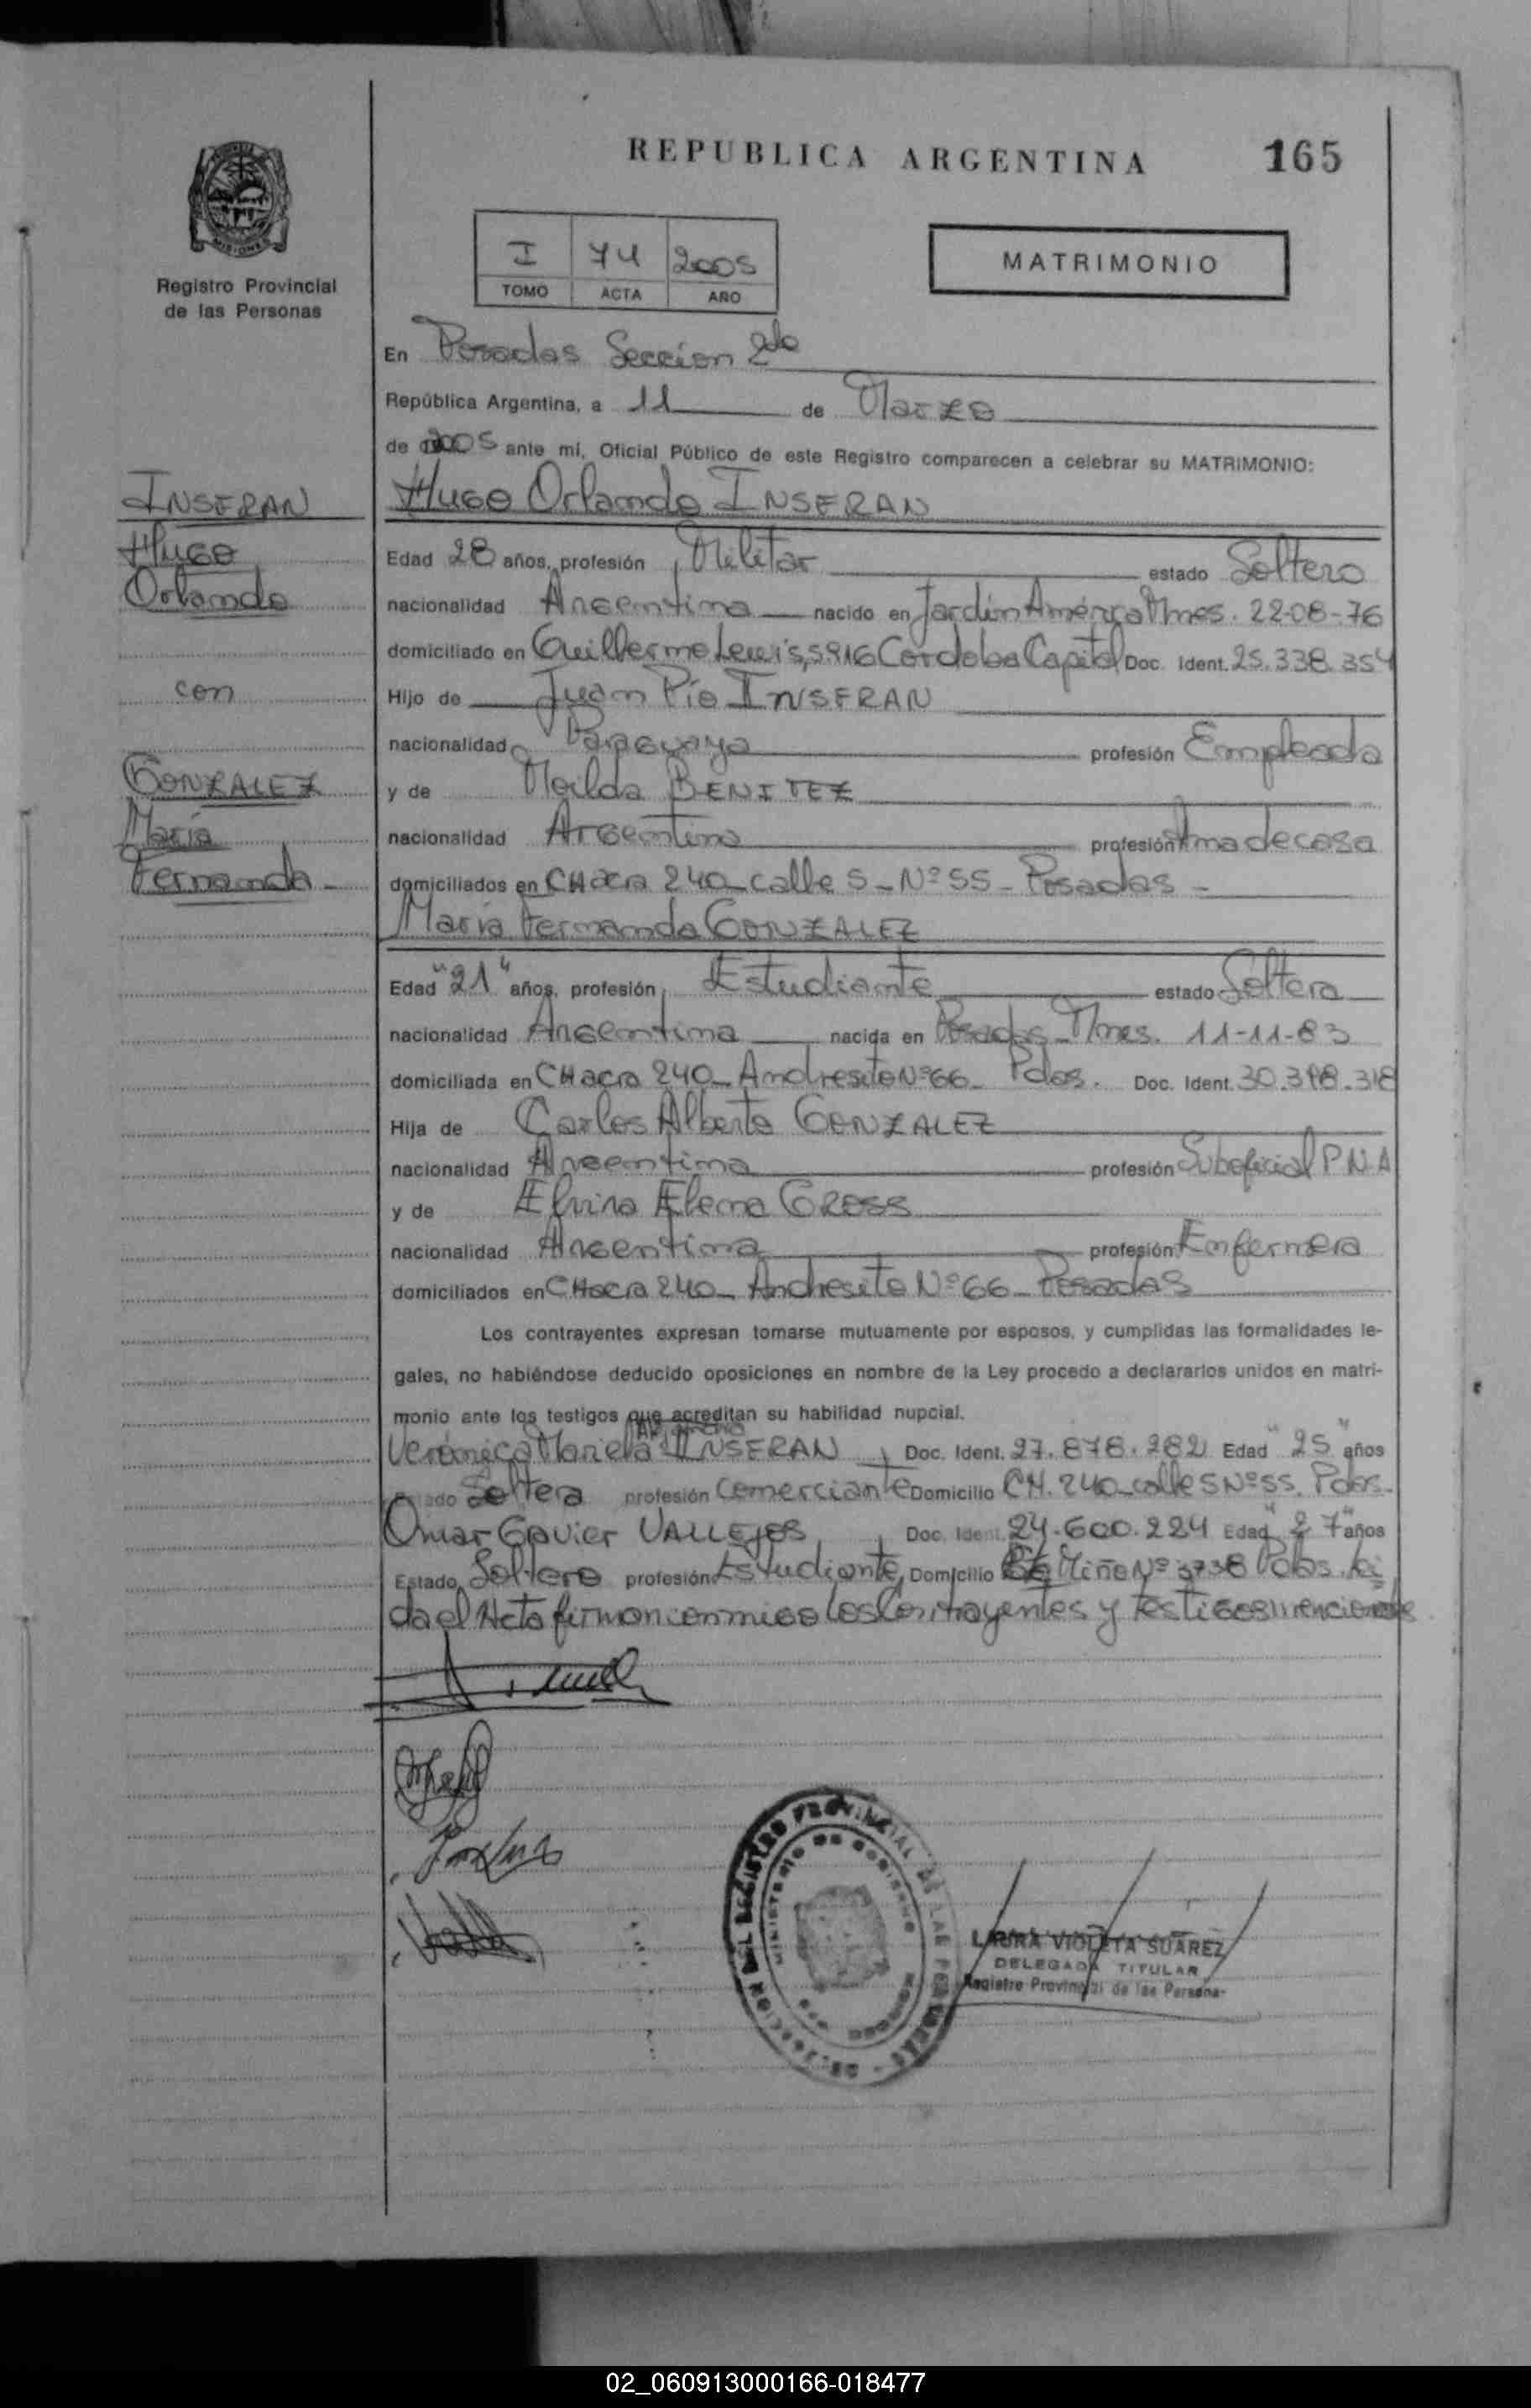 REPUBLICA ARGENTINA
165
MISIONES
Registro Provincial
de las Personas
I 74 2005
TOMO ACTA AÑO
MATRIMONIO
En Posadas Seccion 2da
República Argentina, a 11 de Marzo
de 2005 ante mí, Oficial Público de este Registro comparecen a celebrar su MATRIMONIO:
INSFRAN
Hugo
Orlando
con
GONZALEZ
María
Fernanda
Hugo Orlando INSFRAN
Edad 28 años, profesión Militar estado Soltero
nacionalidad Argentina nacido en Jardín América Mnes. 22-08-76
domiciliado en Guillermo Lewis, 5916 Cordoba Capital Doc. Ident. 25.338.354
Hijo de Juan Pío INSFRAN
nacionalidad Paraguaya profesión Empleado
y de BENITEZ
nacionalidad Argentina profesión Ama de casa
domiciliados en CHacra 240 - calle S - Nº 55 - Posadas -
María Fernanda GONZALEZ
Edad "21" años, profesión Estudiante estado Soltera
nacionalidad Argentina nacida en Posadas - Mnes. 11-11-83
domiciliada en CHacra 240 - Andresito Nº 66 - Pdas. Doc. Ident. 30.398.318
Hija de Carlos Alberto GONZALEZ
nacionalidad Argentina profesión Suboficial P.N.A
y de Elvira Elena GROSS
nacionalidad Argentina profesión Enfermera
domiciliados en CHacra 240 - Andresito Nº 66 - Posadas
Los contrayentes expresan tomarse mutuamente por esposos, y cumplidas las formalidades le-
gales, no habiéndose deducido oposiciones en nombre de la Ley procedo a declararlos unidos en matri-
monio ante los testigos que acreditan su habilidad nupcial.
Verónica Mariela INSFRAN, Doc. Ident. 27.878.282 Edad "25" años
Estado Soltera profesión Comerciante Domicilio CH. 240 - calle S Nº 55. Pdas.
Omar Gavier VALLEJOS, Doc. Ident. 24.600.224 Edad "27" años
Estado Soltero profesión Estudiante, Domicilio Miño Nº 3738 Pdas. Leí
da el Acta firman conmigo los Contrayentes y testigos mencionados
DELEGACION DEL REGISTRO PROVINCIAL DE LAS PERSONAS
MINISTERIO DE GOBIERNO
LAURA VIOLETA SUAREZ
DELEGADA TITULAR
Registro Provincial de las Personas
02_060913000166-018477